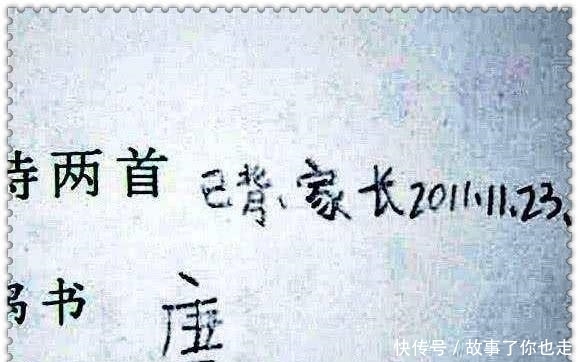 诗两首 已背、家长2011.11.23、
书
快传号 / 故事了你也走